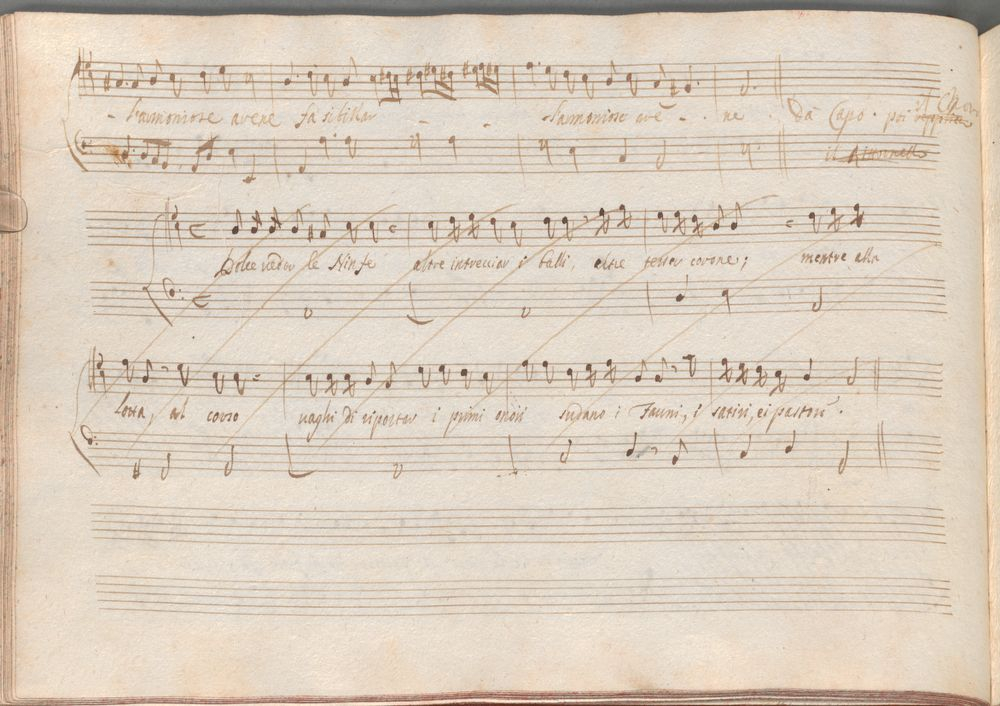 l'armoniose avene fa sibillar - - - l'armoniose ave - - ne . Da Capo . poi il Choro
il Ritornello
Dolce veder le Ninfe altre intrecciar i balli, altre tesser corone; mentre alla
lotta, al corso vaghi di riportar i primi onori sudano i Fauni, i satiri, e i pastori.